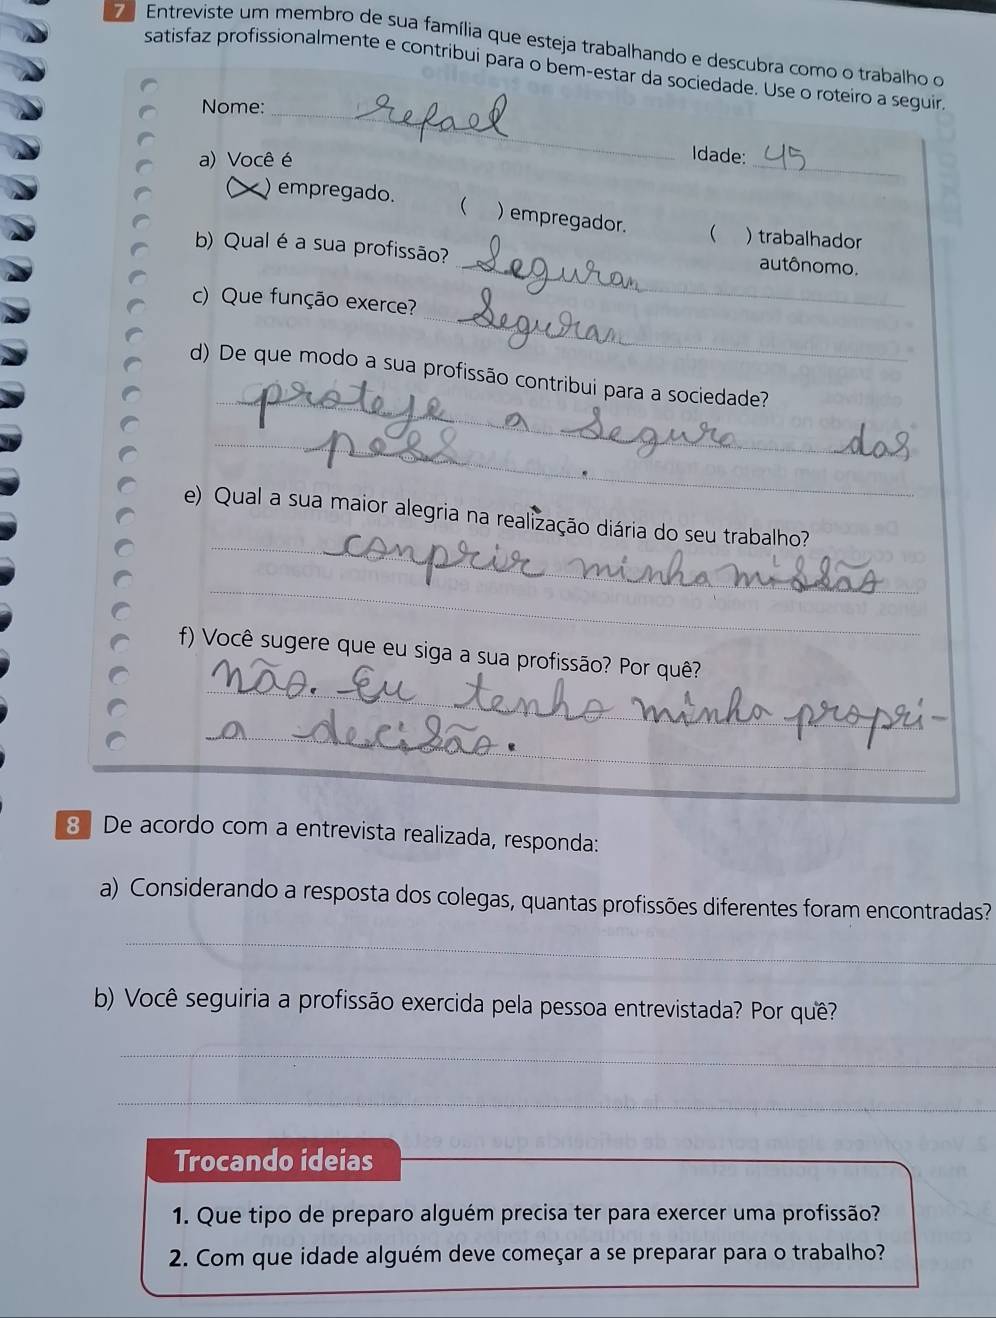 7 Entreviste um membro de sua família que esteja trabalhando e descubra como o trabalho o
satisfaz profissionalmente e contribui para o bem-estar da sociedade. Use o roteiro a seguir.
Nome: Refael Idade: 45
a) Você é
(X) empregado. ( ) empregador. ( ) trabalhador
autônomo.
b) Qual é a sua profissão? Seguran
c) Que função exerce? Seguran
d) De que modo a sua profissão contribui para a sociedade?
proteje a segura das
pess.
e) Qual a sua maior alegria na realização diária do seu trabalho?
conprir minha missão
f) Você sugere que eu siga a sua profissão? Por quê?
não. Eu tenho minha propri-
a decisão.
8 De acordo com a entrevista realizada, responda:
a) Considerando a resposta dos colegas, quantas profissões diferentes foram encontradas?
b) Você seguiria a profissão exercida pela pessoa entrevistada? Por quê?
Trocando ideias
1. Que tipo de preparo alguém precisa ter para exercer uma profissão?
2. Com que idade alguém deve começar a se preparar para o trabalho?